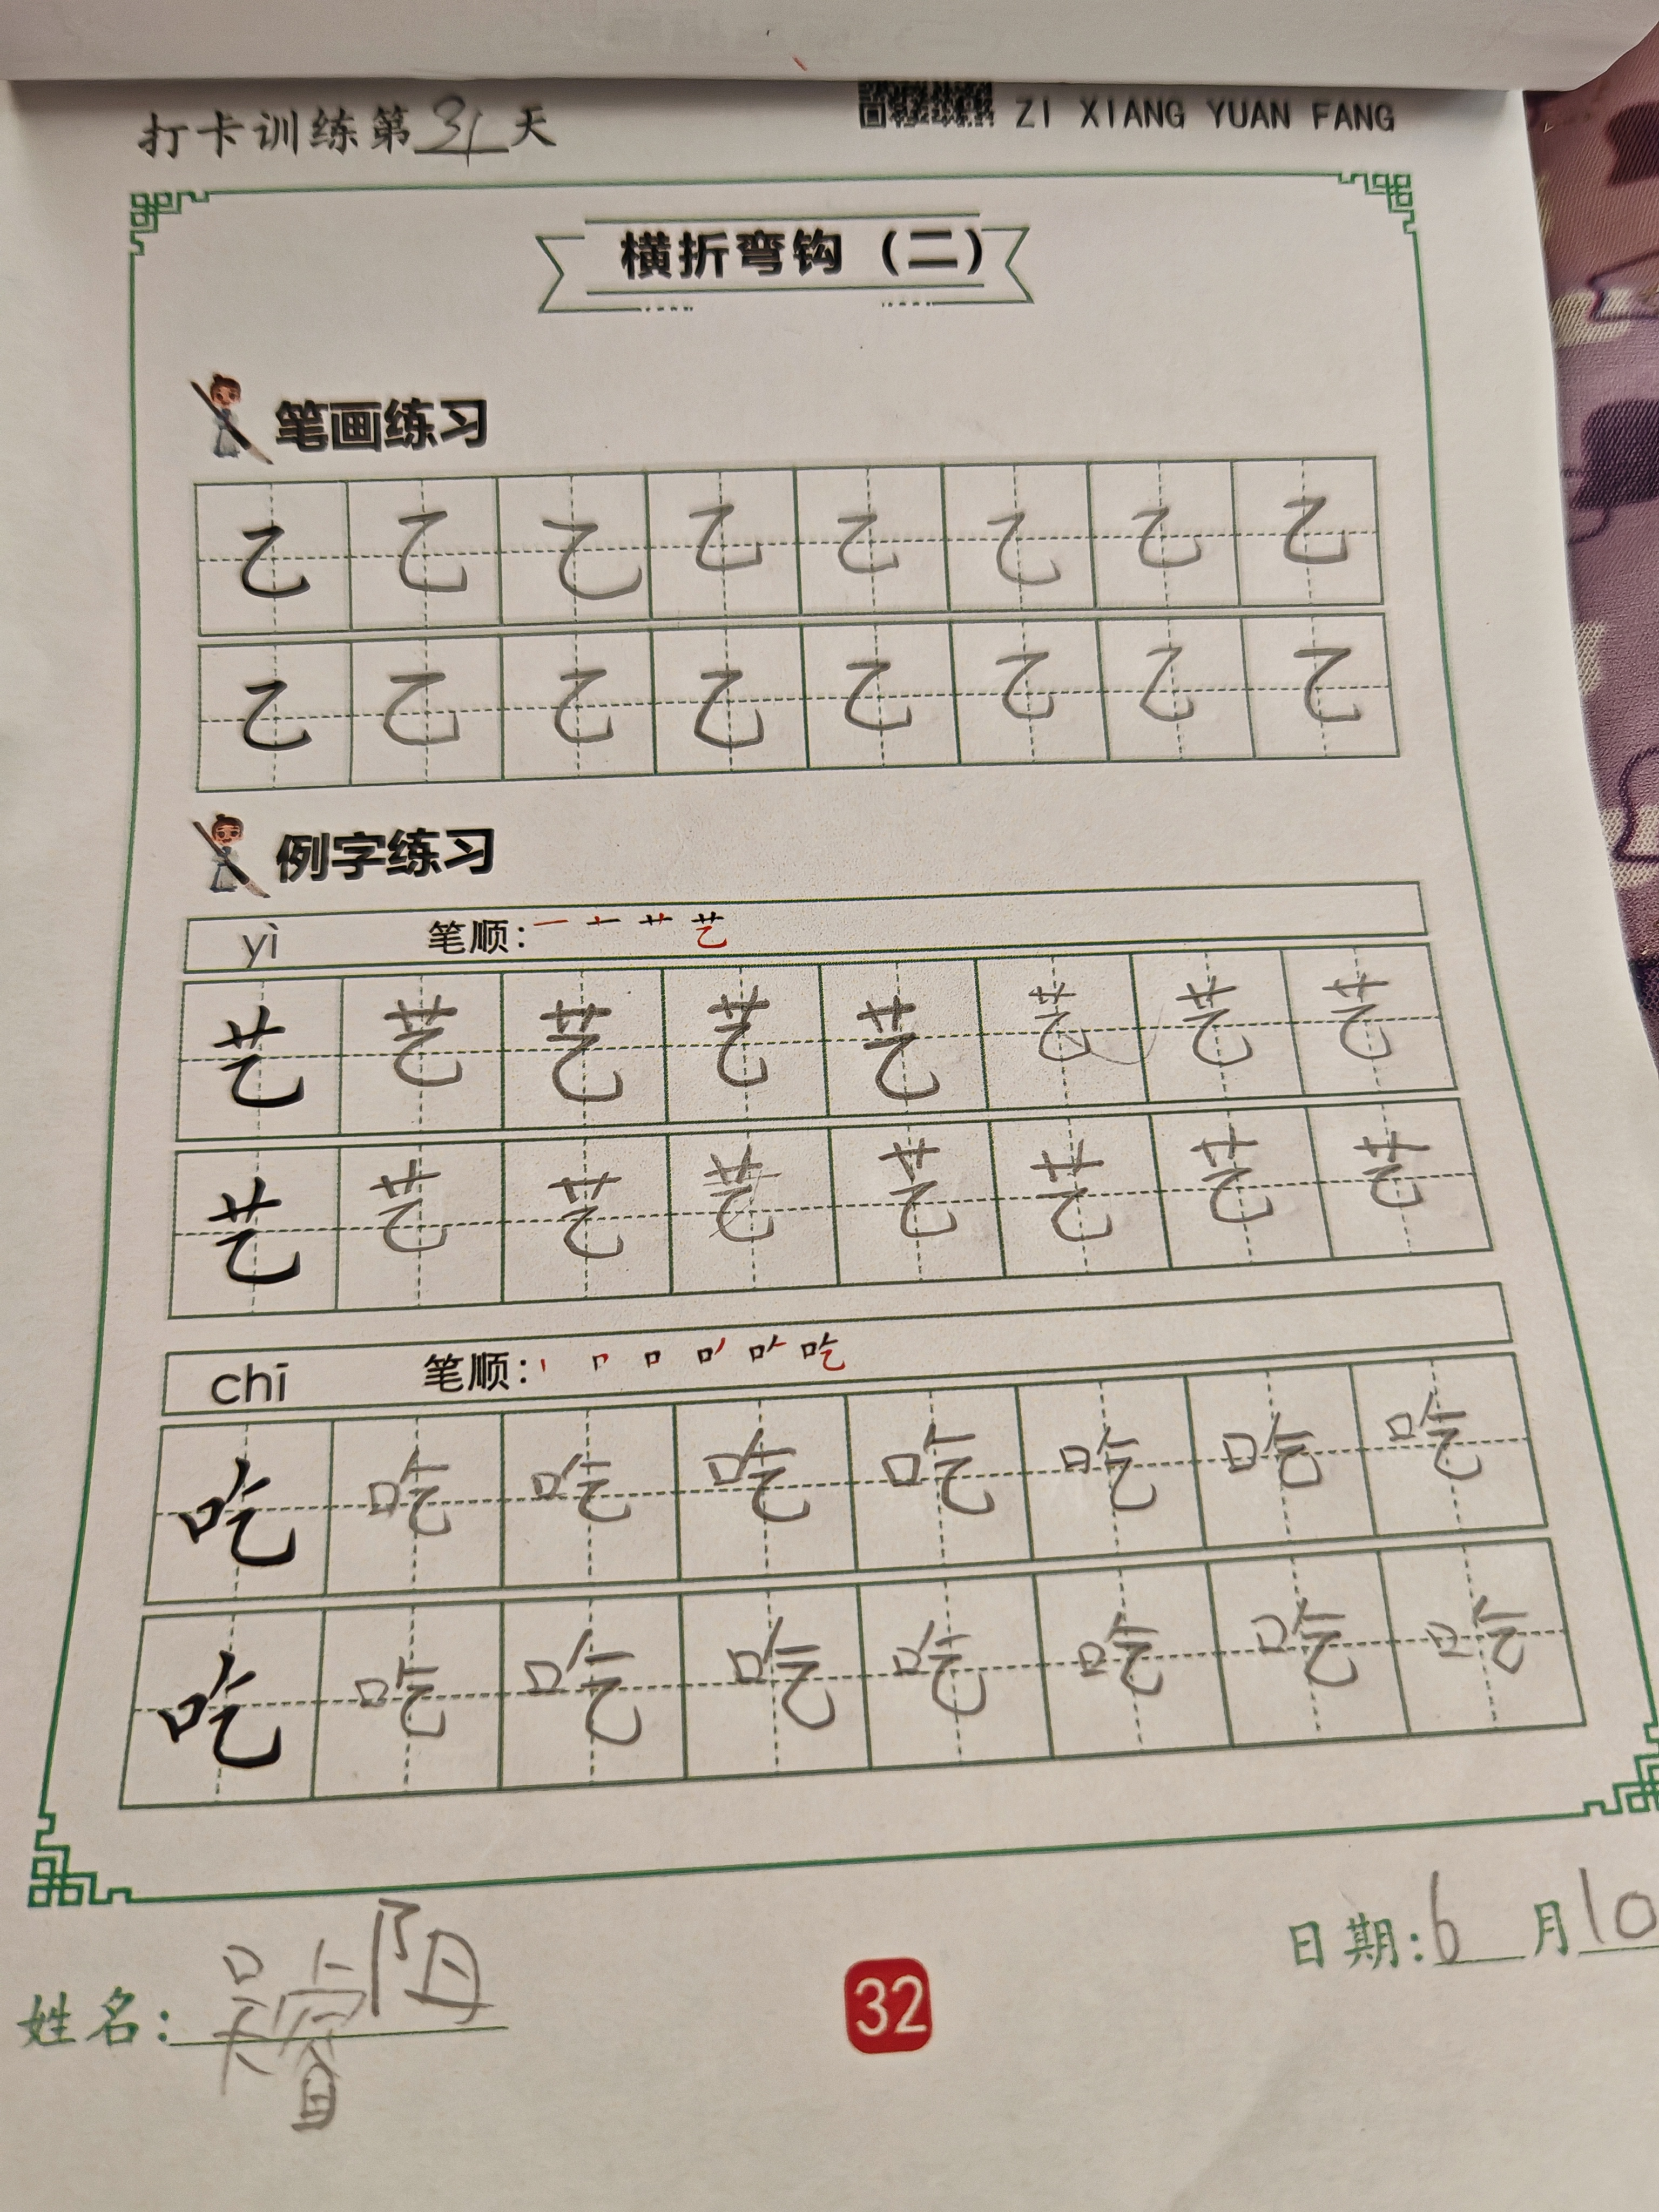 打卡训练第31天
ZI XIANG YUAN FANG
横折弯钩（二）
笔画练习
乙 乙 乙 乙 乙 乙 乙 乙
乙 乙 乙 乙 乙 乙 乙 乙
例字练习
yì 笔顺：一 十 艹 艺
艺 艺 艺 艺 艺 艺 艺 艺
艺 艺 艺 艺 艺 艺 艺 艺
chī 笔顺：丨 𠃍 口 吃
吃 吃 吃 吃 吃 吃 吃 吃
吃 吃 吃 吃 吃 吃 吃 吃
姓名：吴睿阳
32
日期：6月10